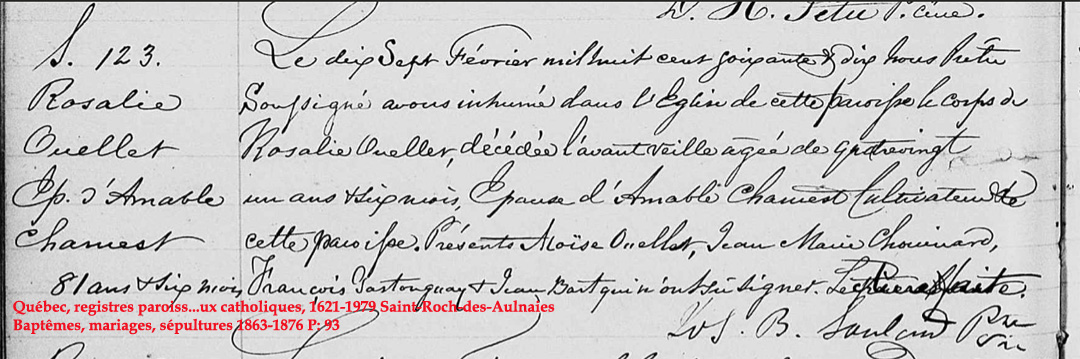 D. H. Têtu P. curé.
S. 123.
Rosalie
Ouellet
Ep. d'Amable
Chamest
81 ans & six mois
Le dix Sept Février mil huit cent soixante & dix nous Prêtre
Soussigné avons inhumé dans l'Eglise de cette paroisse le corps de
Rosalie Ouellet, décédée l'avant veille agée de quatrevingt
un ans & six mois, Epouse d'Amable Chamest Cultivateur de
cette paroisse. Présents Moïse Ouellet, Jean Marie Chouinard,
François Gastonguay & Jean Bart qui n'ont sû signer. Lecture faite.
Ls. B. Ptre
Québec, registres paroiss...ux catholiques, 1621-1979 Saint-Roch-des-Aulnaies
Baptêmes, mariages, sépultures 1863-1876 P: 93